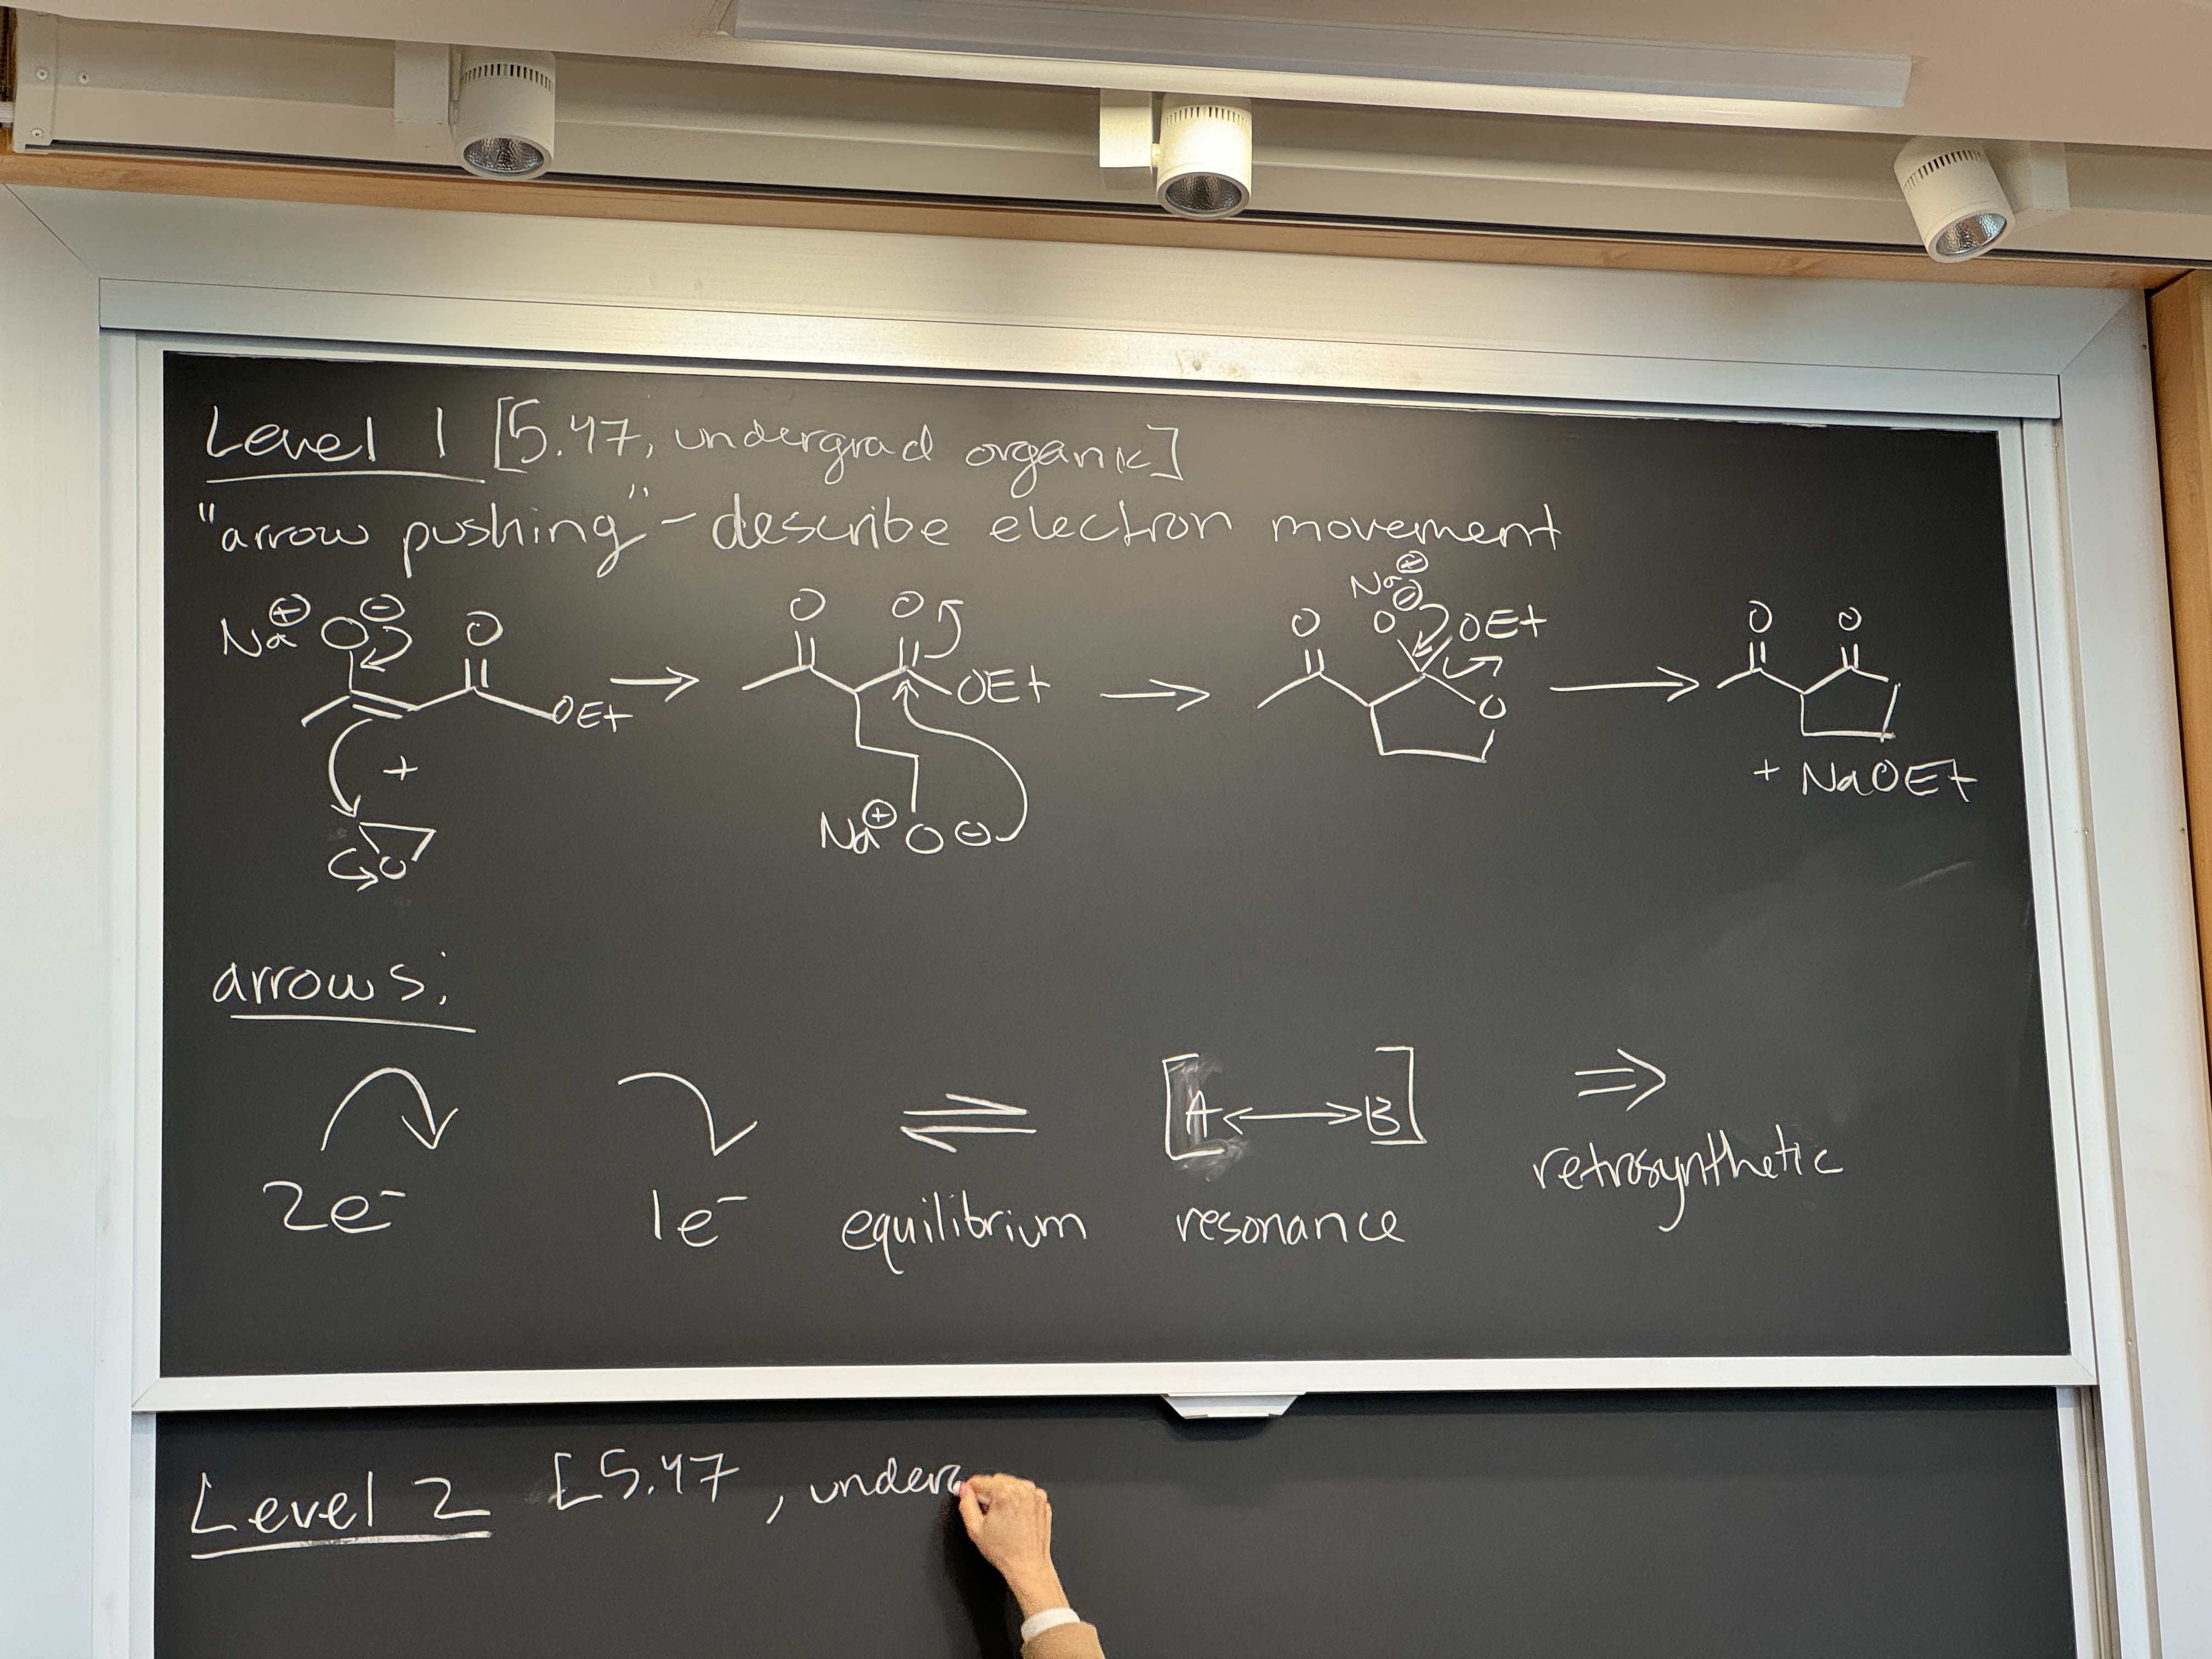 Level 1 [5.47, undergrad organic]
"arrow pushing" - describe electron movement
Na⊕ O⊖ O OEt
+
O
→
O O OEt
Na⊕ O⊖
→
O Na⊕ O⊖ OEt O
→
O O
+ NaOEt
arrows:
⇌ [A ↔ B] ⇒
2e⁻ 1e⁻ equilibrium resonance retrosynthetic
Level 2 [5.47, underg